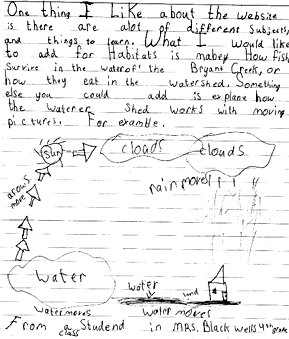 One thing I Like about the website
is there are alot of different Subjects,
and things to learn. What I would like
to add for Habitats is mabey How fish
Survive in the water of the Bryant Creek, or
how they eat in the watershed. Something
else you could add is explane how
the waterer Shed works with moving
pictures. For examble.
Sun clouds clouds
arows move
rain moves
water
water
land
water moves water moves
From a Studend in MRS. Blackwells 4th grade
class